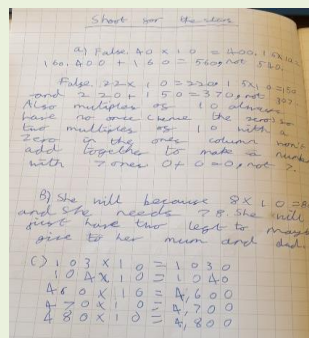 Shoot for the stars
a) False. 40 x 10 = 400, 15x10=
160. 400 + 160 = 560, not 540.
False. 22x 10=220 15x10=150
and 220 + 150=370, not 307.
Also multiples of 10 always
have no ones the zero so
two multiples of 10 with a
zero in the ones column won't
add together to make a number
with 7 ones 0+0=0, not 7.
B) She will because 8x10=8
and she needs 78. She will
just have two left to maybe
give to her mum and dad.
C) 103 x 10 = 1030
104x 10 = 1040
460 x 10 = 4,600
470x10 = 4,700
480x10 = 4,800